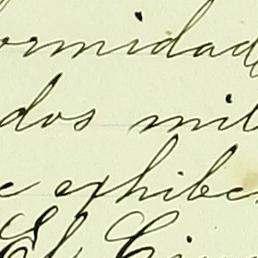 ormidad
dos mil
e exhibe
El Ci